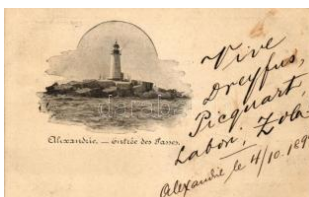 Alexandrie. — Entrée des Passes.
Vive
Dreyfus,
Picquart,
Labori, Zola
Alexandrie le 4/10. 189